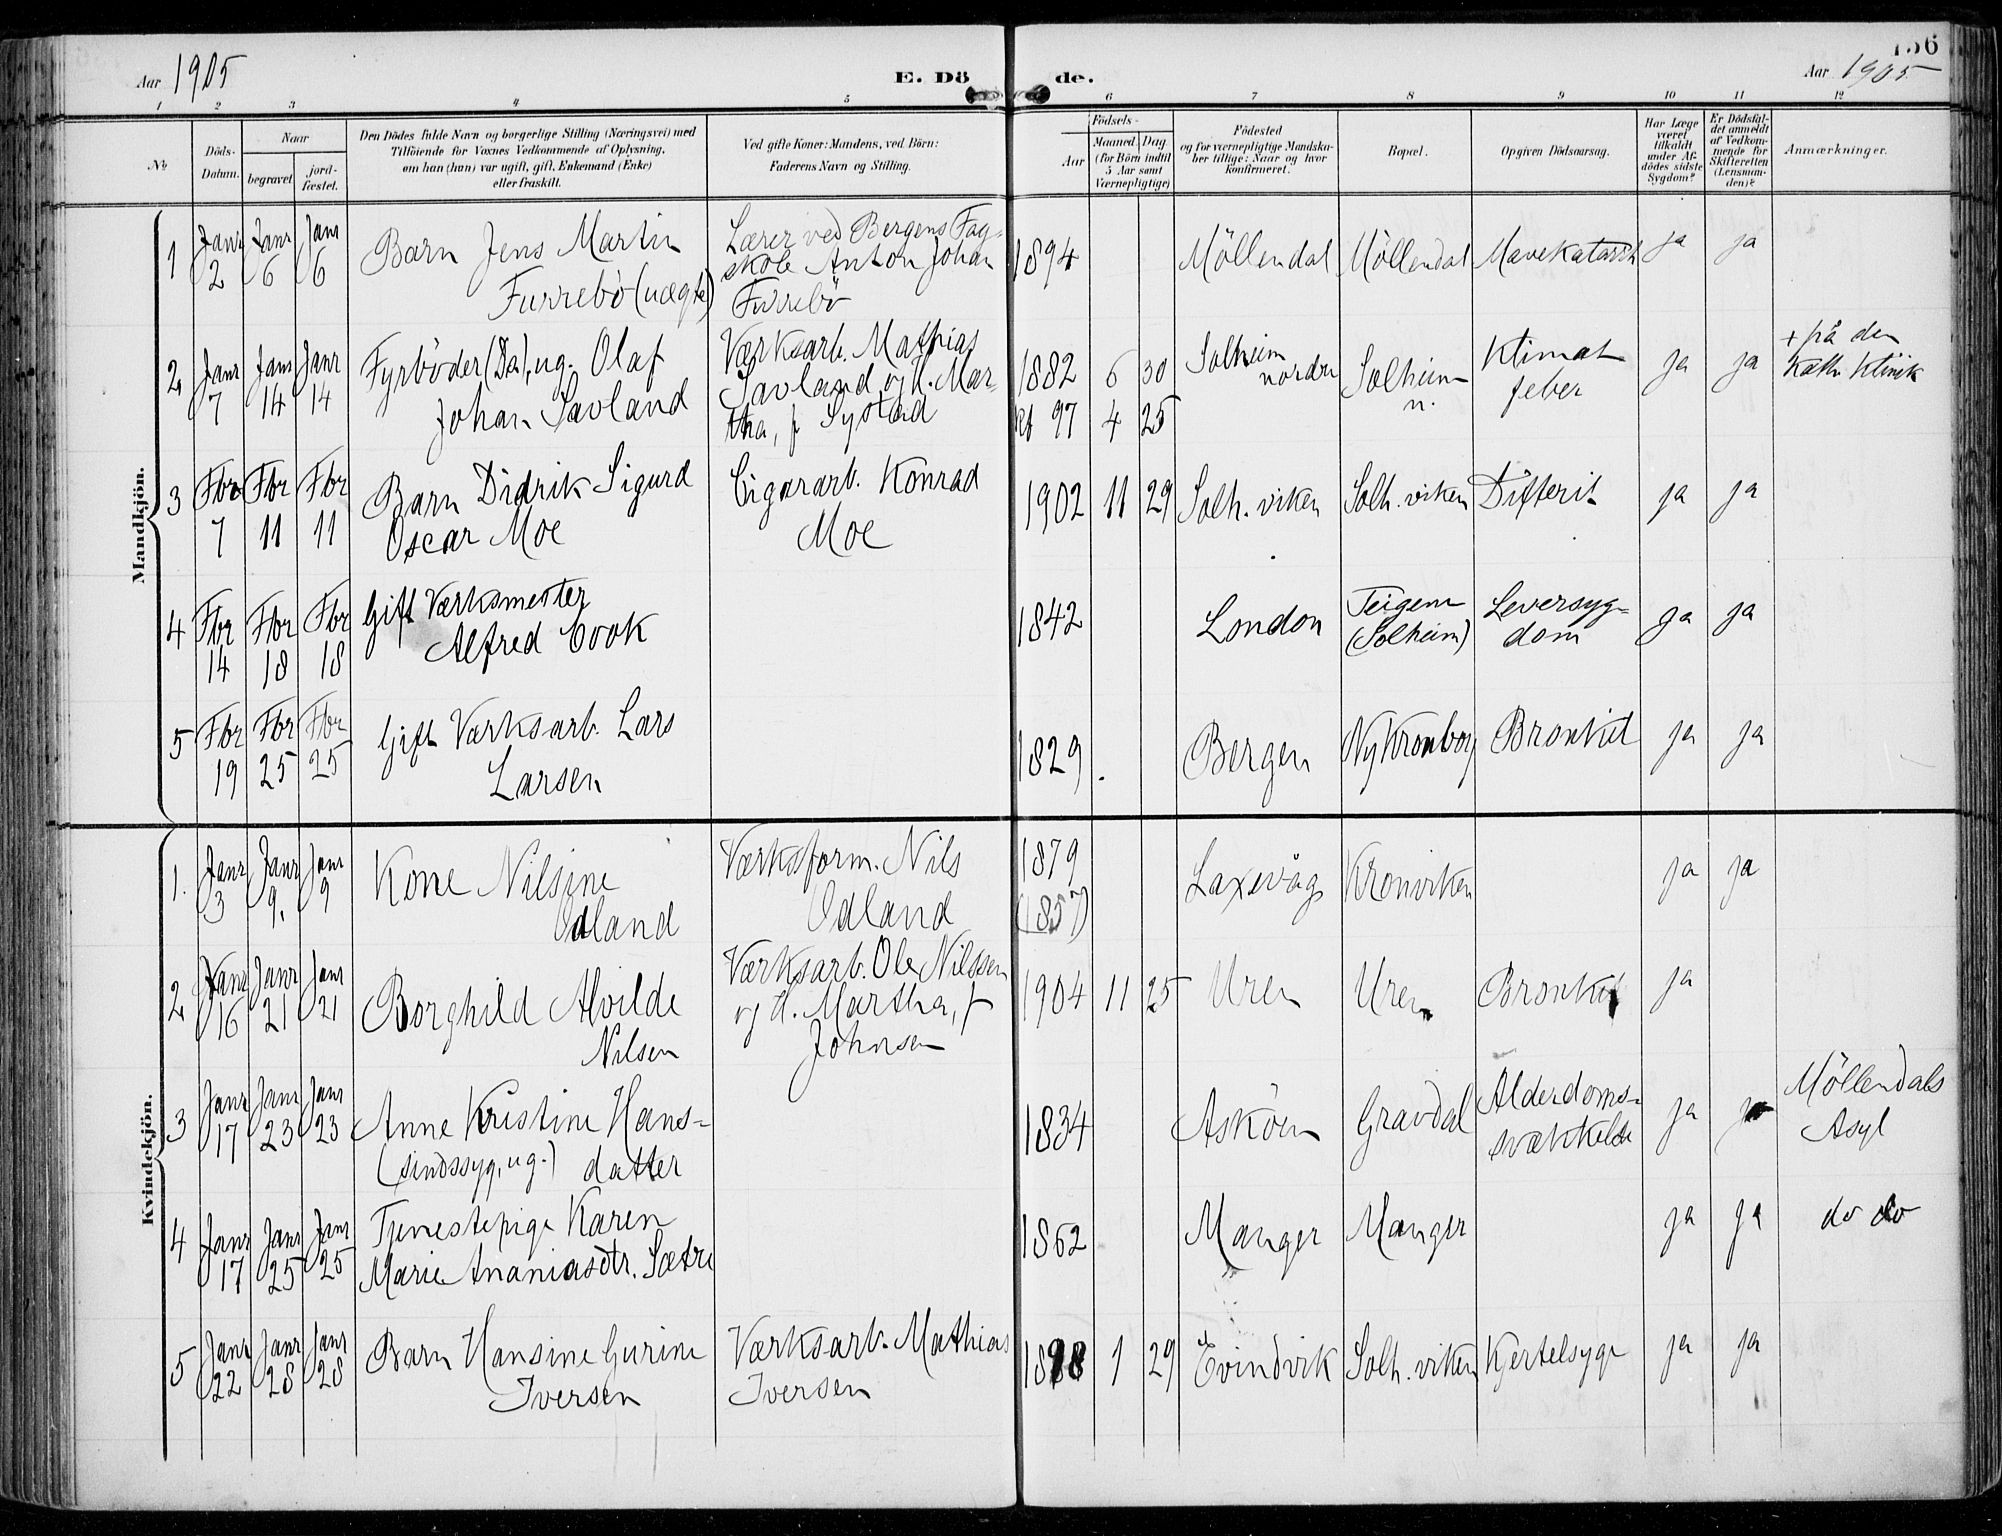 156
Aar 1905
E. Dö de.
Aar 1905
1 2 3 4 5 6 7 8 9 10 11 12
No
Döds-
Datum.
Naar
begravet.
jord-
fæstet.
Den Dödes fulde Navn og borgerlige Stilling (Næringsvei) med
Tilföiende for Voxnes Vedkommende af Oplysning,
om han (hun) var ugift, gift, Enkemand (Enke)
eller fraskilt.
Ved gifte Koner: Mandens, ved Börn:
Faderens Navn og Stilling.
Födsels-
Aar
Maaned
Dag
(for Börn indtil
5 Aar samt
Værnepligtige)
Födested
og for værnepligtige Mandska-
ber tillige: Naar og hvor
konfirmeret.
Bopæl.
Opgiven Dödsaarsag.
Har Læge
været
tilkaldt
under Af-
dödes sidste
Sygdom?
Er Dödsfal-
det anmeldt
af Vedkom-
mende for
Skifteretten
(Lensman-
den)?
Anmærkninger.
Mandkjön.
1 Janr 2 Janr 6 Janr 6
Barn Jens Martin
Furrebö (uægte)
Lærer ved Bergens Fag-
skole Anton Johan
Furrebö
1894 Möllendal Möllendal Mavekatarrh ja ja
2 Janr 7 Janr 14 Janr 14
Fyrböder (Ds), ug. Olaf
Johan Savland
Værksarb. Mathias
Savland og H. Mar-
tha, f Systad
1882 6 30
97 4 25
Solheim
nordre
Solheim
n.
Klimat
feber
ja ja
+ på den
Kath. Klinik
3 Fbr 7 Fbr 11 Fbr 11
Barn Didrik Sigurd
Oscar Moe
Cigararb. Konrad
Moe
1902 11 29 Solh. viken Solh. viken Difterit ja ja
4 Fbr 14 Fbr 18 Fbr 18
Gift Værksmester
Alfred Cook
1842 London
Teigene
(Solheim)
Leversyg-
dom
ja ja
5 Fbr 19 Fbr 25 Fbr 25
Gift Værksarb. Lars
Larsen
1829 . Bergen Ny Kronborg Bronkit ja ja
Kvindekjön.
1. Janr 3 Janr 9. Janr 9
Kone Nilsine
Odland
Værksform. Nils
Odland
1879
(1857)
Laxevåg Kronviken ja ja
2 Janr 16 Janr 21 Janr 21
Borghild Alvilde
Nilsen
Værksarb. Ole Nilssen
og H. Martha, f
Johnsen
1904 11 25 Uren Uren Bronkit ja
3 Janr 17 Janr 23 Janr 23
Anne Kristine Hans-
(sindssyg, ug.) datter
1834 Asköen Gravdal
Alderdoms-
svækkelse
ja ja
Möllendals
Asyl
4 Janr 17 Janr 25 Janr 25
Tjenestepige Karen
Marie Ananiasdtr. Sætre
1862 Manger Manger ja ja do do
5 Janr 22 Janr 28 Janr 28
Barn Hansine Gurine
Iversen
Værksarb. Mathias
Iversen
1898 1 29 Evindvik Solh. viken Kjertelsyge ja ja